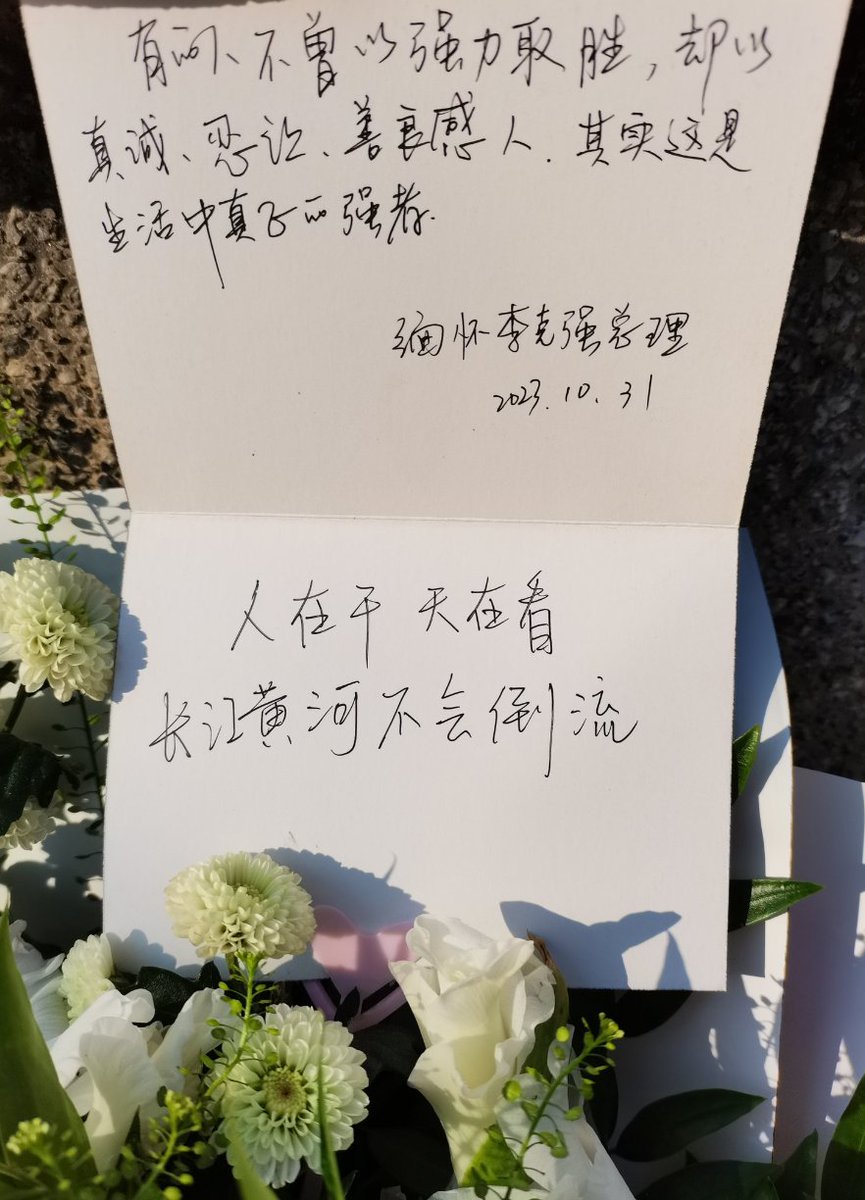 有的、不曾以强力取胜，却以
真诚、忍让、善良感人.其实这是
生活中真正的强者.
缅怀李克强总理
2023.10.31
人在干 天在看
长江黄河不会倒流